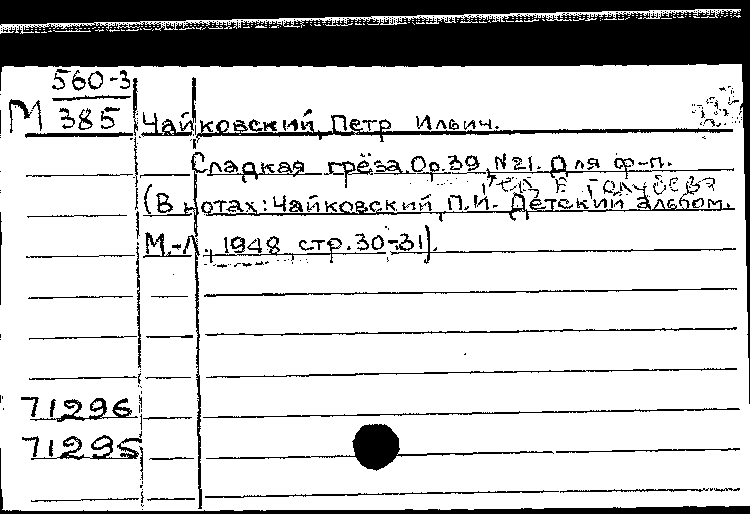 560-3
М 385 Чайковский, Петр Ильич.
Сладкая грёза. Op.39, N21. Для ф-п.
Ред. Е. Голубева
(В нотах: Чайковский, П.И. Детский альбом.
М.-Л., 1948, стр.30-31).
71296
71295